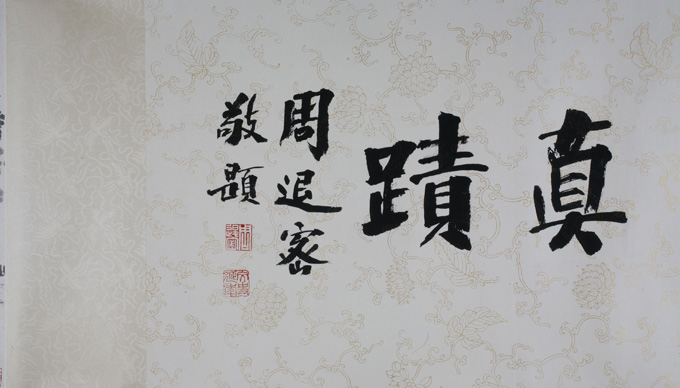 真蹟
周退密
敬題